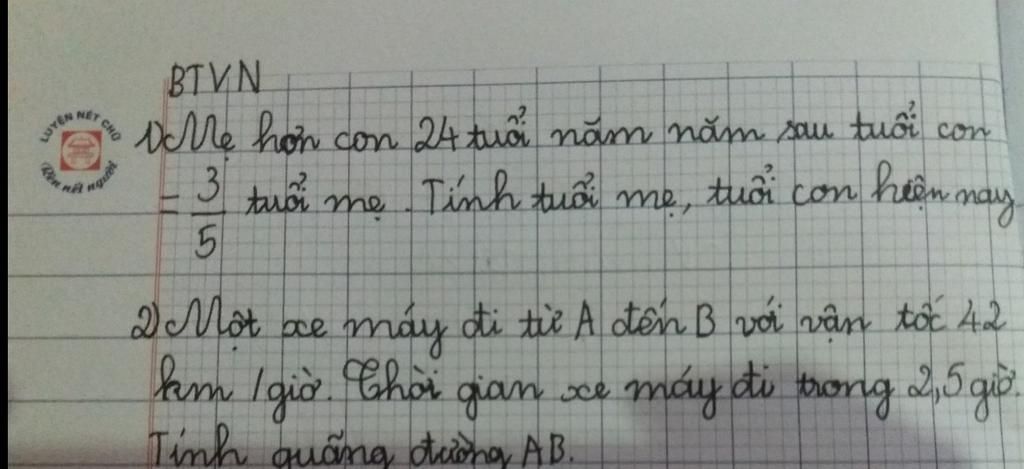 BTVN
LUYỆN NÉT CHỮ
Rèn nết người
1) Mẹ hơn con 24 tuổi năm năm sau tuổi con
= 3/5 tuổi mẹ. Tính tuổi mẹ, tuổi con hiện nay
2) Một xe máy đi từ A đến B với vận tốc 42
km/giờ. Thời gian xe máy đi trong 2,5 giờ.
Tính quãng đường AB.